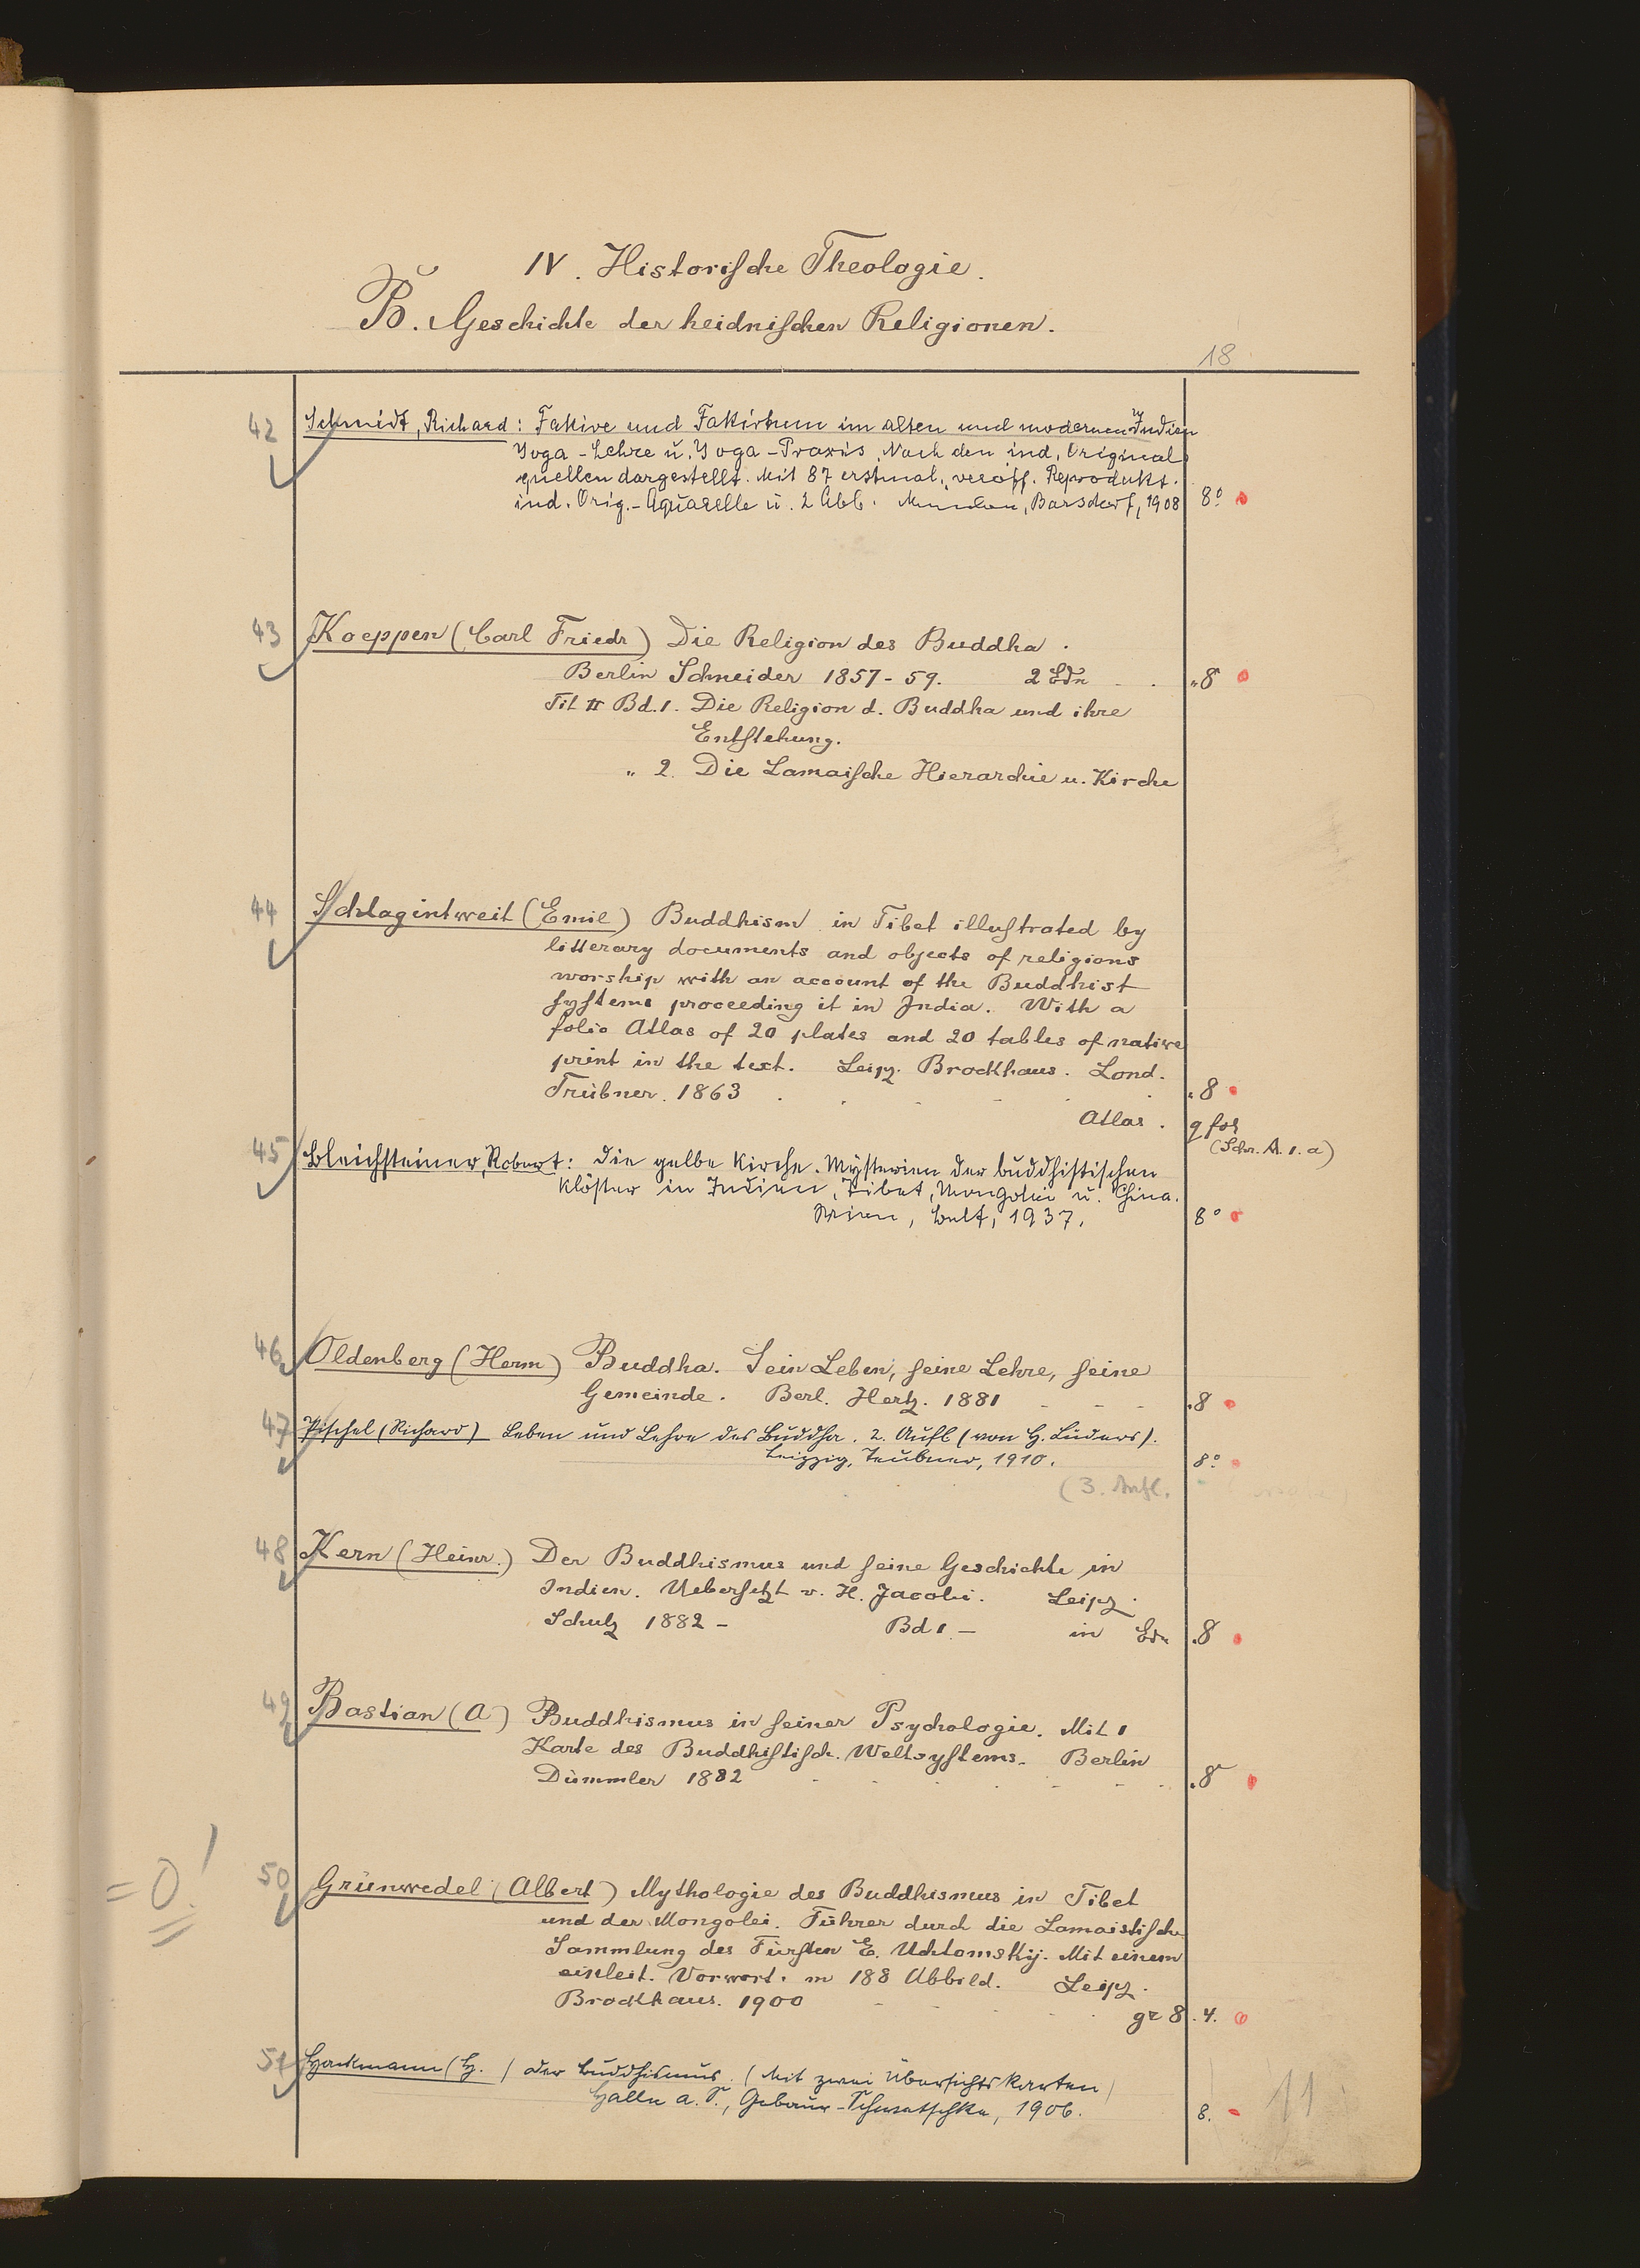 IV. Historische Theologie.
B. Geschichte der heidnischen Religionen.
18
42 Schmidt, Richard: Fakire und Fakirtum im alten und modernen Indien
Yoga-Lehre u. Yoga-Praxis. Nach den ind. Original
quellen dargestellt. Mit 87 erstmal. veröff. Reprodukt.
ind. Orig.-Aquarelle u. 2 Abb. Barsdorf, 1908 8°
43 Koeppen (Carl Friedr) Die Religion des Buddha.
Berlin Schneider 1857-59. 2 Bdn . . „8
Tit Bd. 1. Die Religion d. Buddha und ihre
Entstehung.
„ 2. Die Lamaische Hierarchie u. Kirche
44 Schlagintweit (Emil) Buddhism in Tibet illustrated by
litterary documents and objects of religions
worship with an account of the Buddhist
systems proceeding it in India. With a
folio Atlas of 20 plates and 20 tables of native
print in the text. Leipz. Brockhaus. Lond.
Trübner. 1863 . . - - . „8
Atlas . q fol
(Schr. A. 1. a)
45 Bleichsteiner, Robert: Die gelbe Kirche. Mysterien der buddhistischen
Klöster in Indien, Tibet, Mongolei u. China.
Wien, Belf, 1937. 8°
46 Oldenberg (Herm) Buddha. Sein Leben, seine Lehre, seine
Gemeinde. Berl. Hertz. 1881 - - - „8
47 Pischel (Richard) Leben und Lehre des Buddha. 2. Aufl (von H. Lüders).
Leipzig, Teubner, 1910. 8°
(3. Aufl.
48 Kern (Heinr.) Der Buddhismus und seine Geschichte in
Indien. Uebersetzt v. H. Jacobi. Leipz.
Schulz 1882 - Bd 1. - in Bdn „8
49 Bastian (A) Buddhismus in seiner Psychologie. Mit 1
Karte des Buddhistisch. Weltsystems. Berlin
Dümmler 1882 - - - - - - „8
= 0!
50 Grünwedel (Albert) Mythologie des Buddhismus in Tibet
und der Mongolei. Führer durch die Lamaistische
Sammlung des Fürsten E. Uchtomskij. Mit einem
einleit. Vorwort. m 188 Abbild. Leipz.
Brockhaus. 1900 - - - - gr 8. 4.
51 Hackmann (H.) Der Buddhismus. (Mit zwei Übersichtskarten)
Halle a. S., Gebaur-Schwetschke, 1906. 8.
11